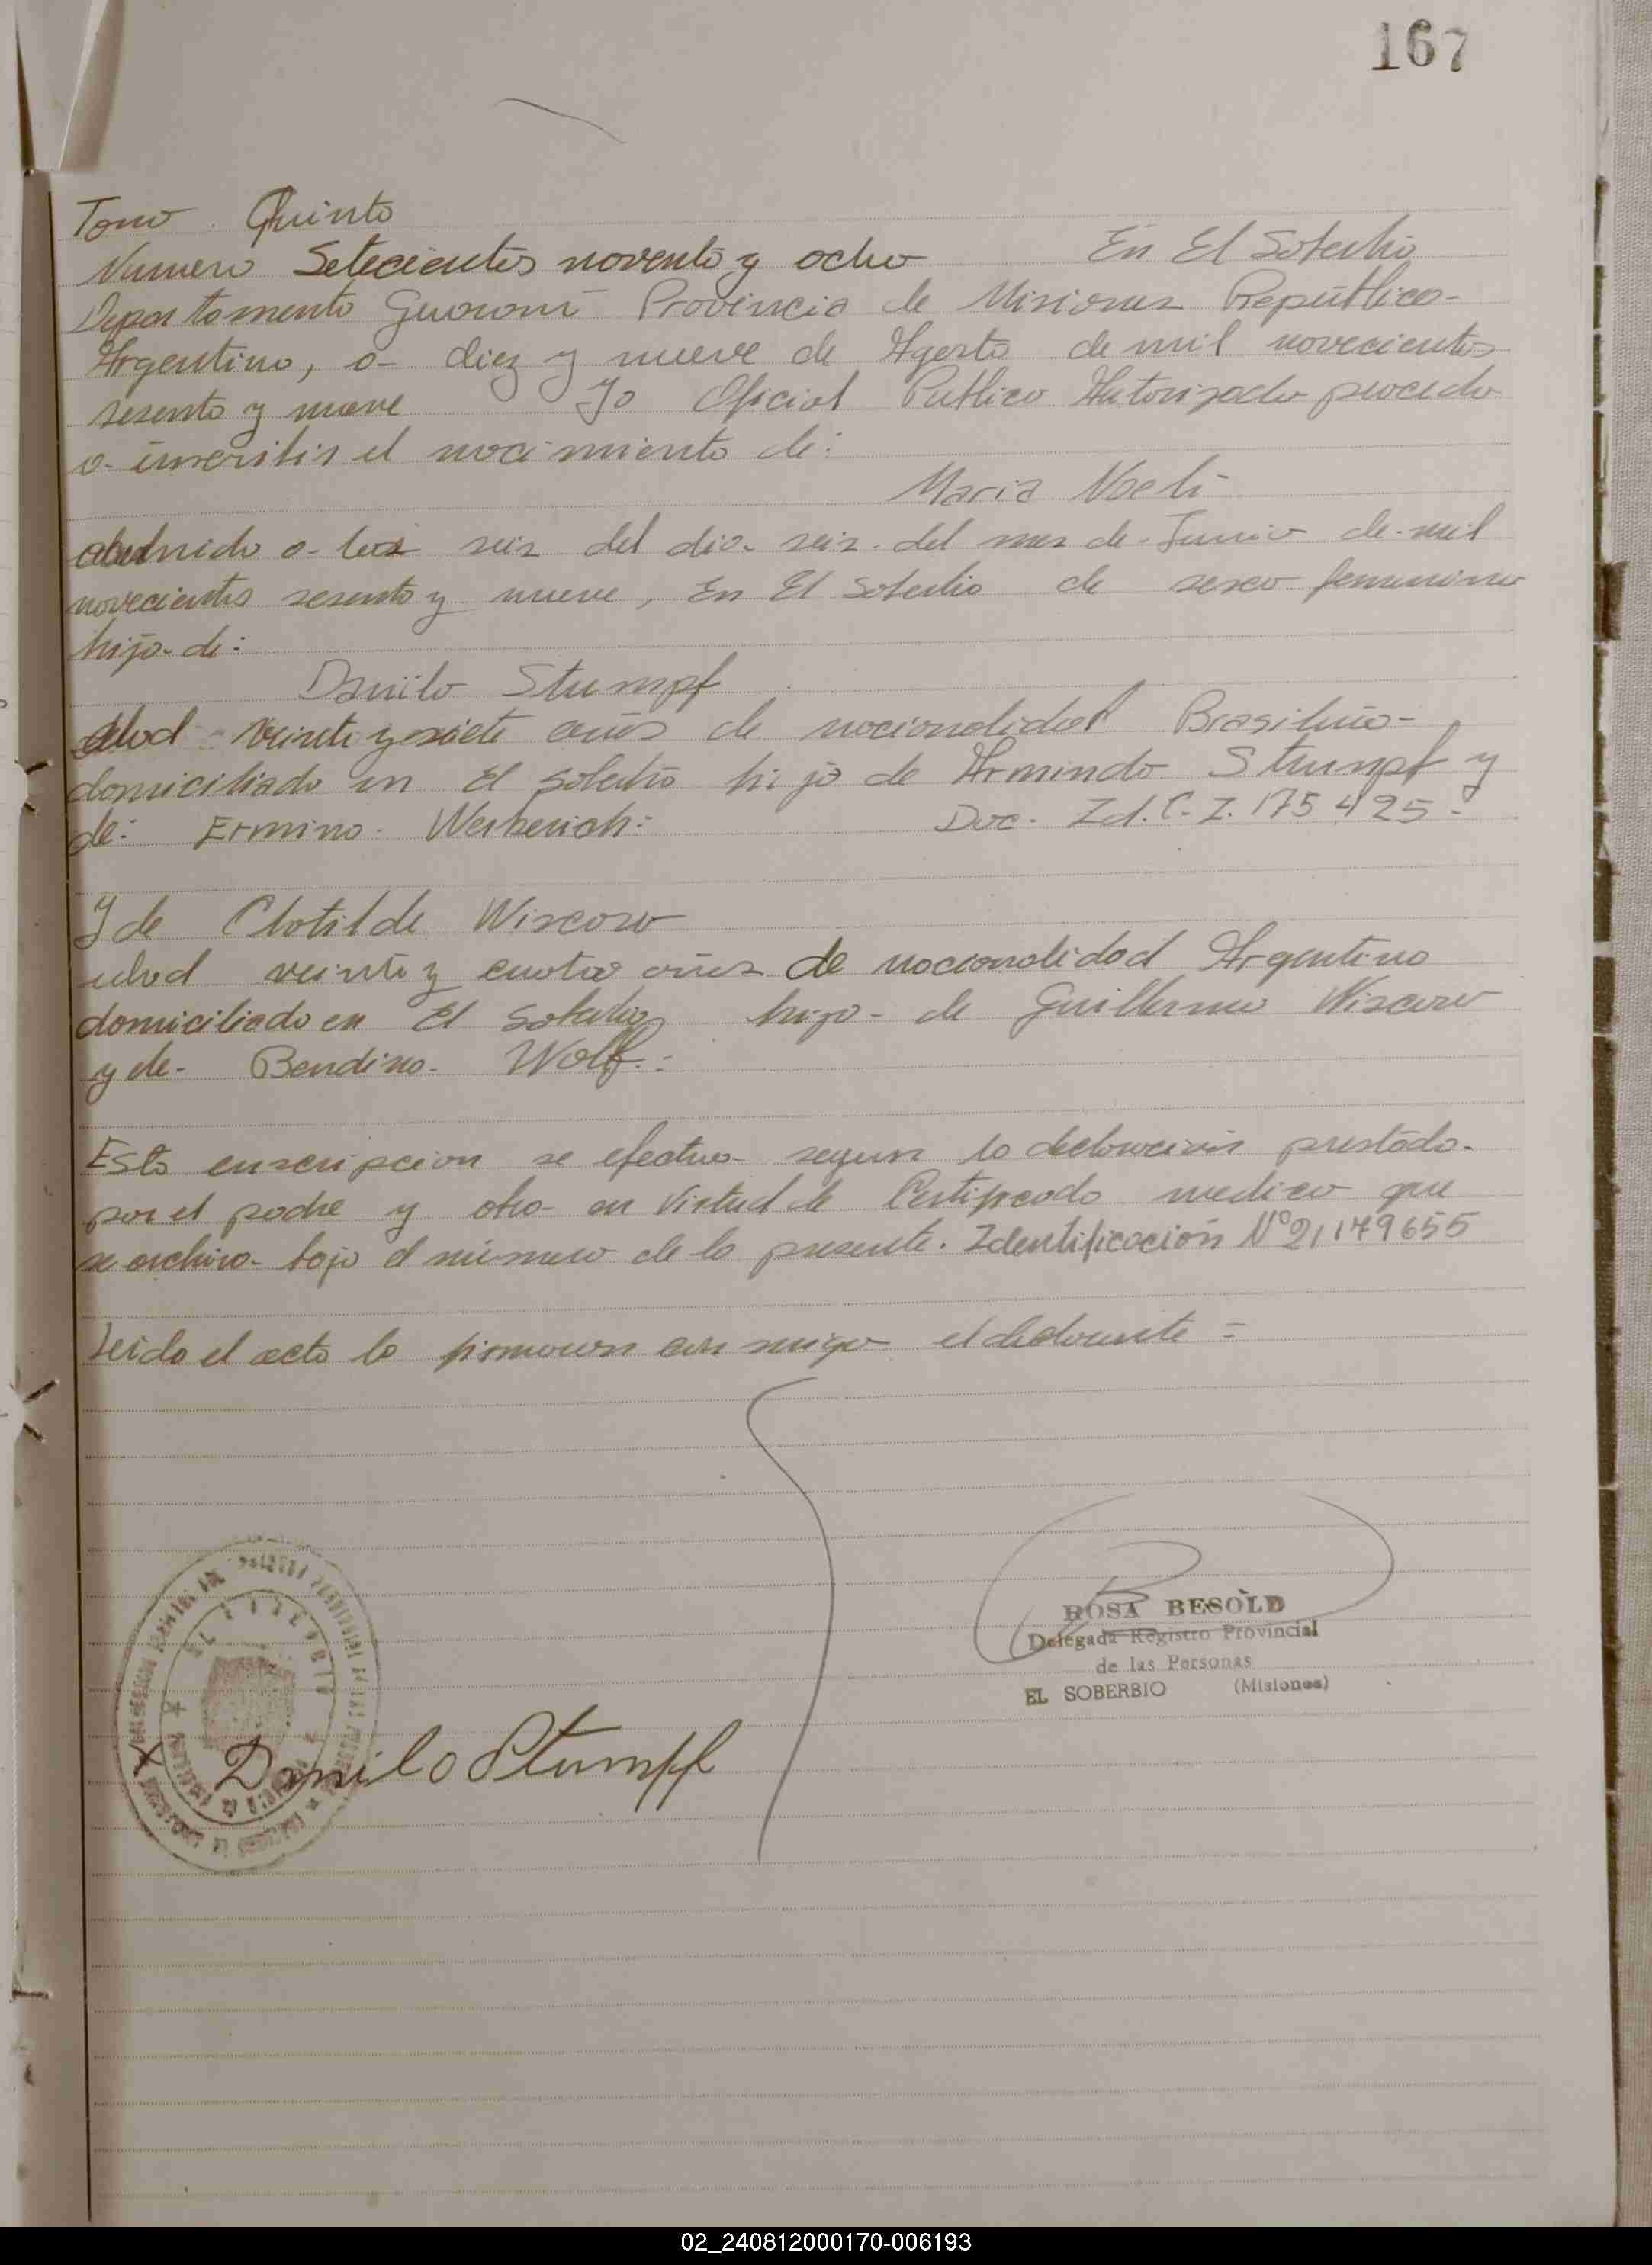 167
Tomo Quinto
Numero Setecientos noventa y ocho En El Soberbio
Departamento Guaraní Provincia de Misiones República
Argentina, a diez y nueve de Agosto de mil novecientos
sesenta y nueve Yo Oficial Publico Autorizado procedo
a inscribir el nacimiento de:
Maria Noeli
a las seis del dia seis del mes de Junio de mil
novecientos sesenta y nueve, En El Soberbio de sexo femenino
hija de:
Danilo Stumpf
edad veinte y siete años de nacionalidad Brasileño
domiciliado en El Soberbio hijo de Armindo Stumpf y
de: Ermina Weiherich: Doc. Id. C. I. 175425-
Y de Clotilde Wiscow
edad veinte y cuatro años de nacionalidad Argentina
domiciliado en El Soberbio hija de Guillermo Wiscow
y de Bendina Wolf.:
Esta enscripcion se efectua segun la declaración prestada
por el padre y otro en Virtud de Certificado medico que
se archiva bajo el número de la presente. Identificación Nº 21179655
Leida el acta la firmaron con migo el declarante =
EL SOBERBIO
ROSA BESOLD
Delegada Registro Provincial
de las Personas
EL SOBERBIO (Misiones)
X Danilo Stumpf
02_240812000170-006193